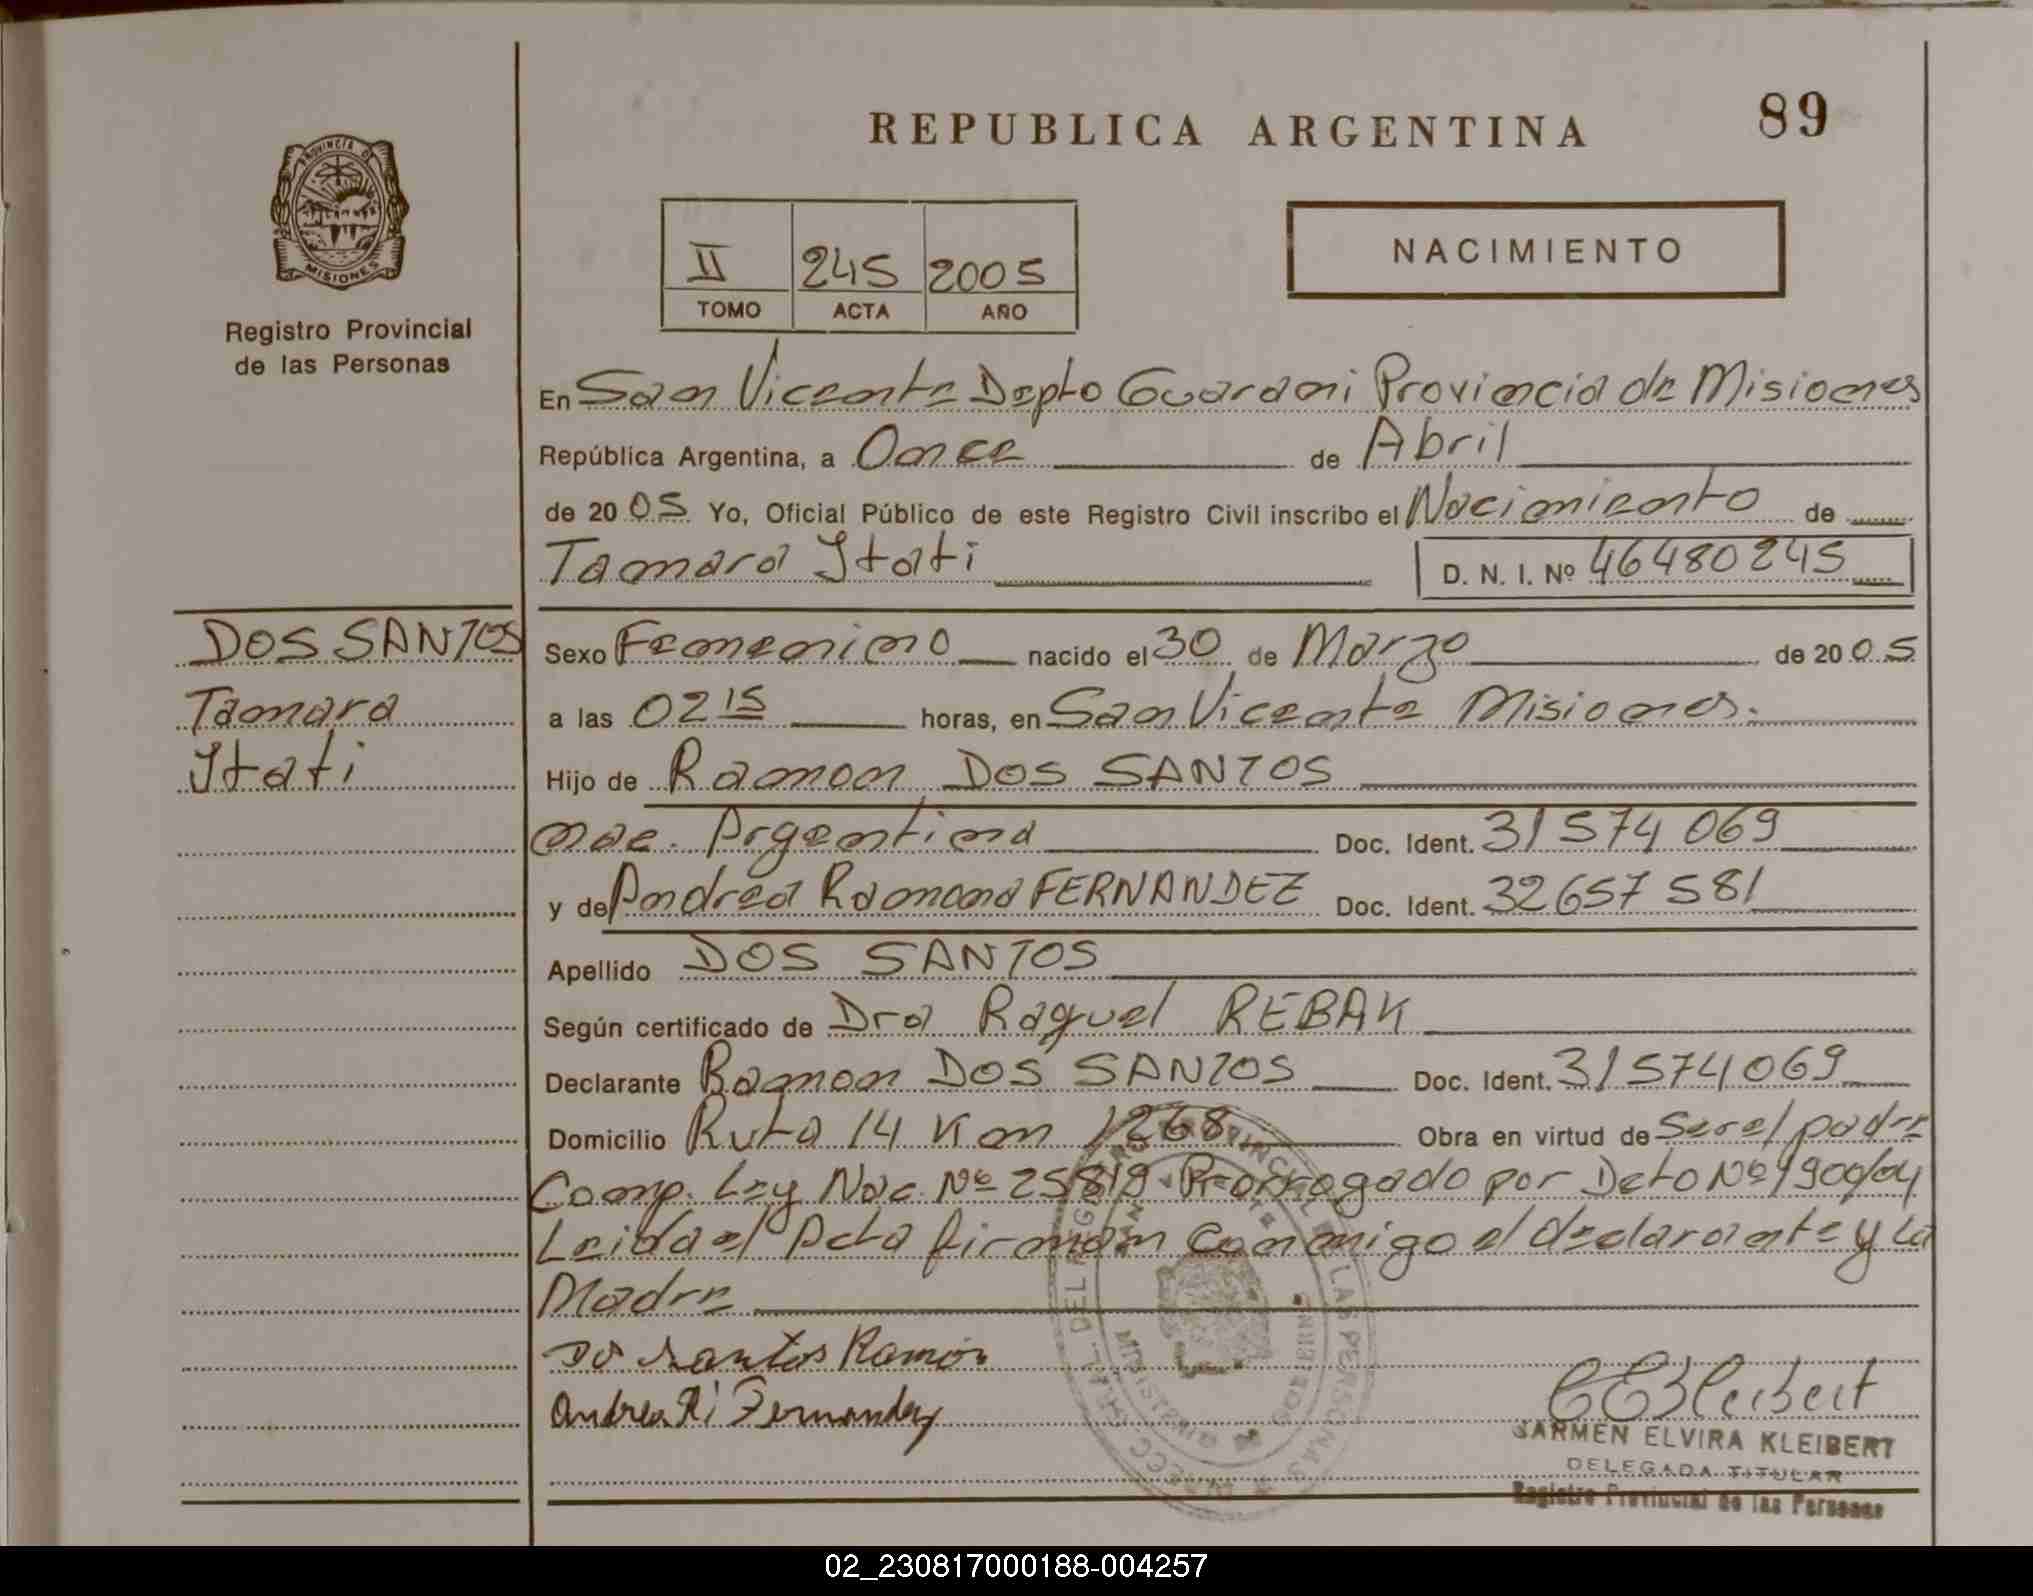 REPUBLICA ARGENTINA
89
PROVINCIA DE
MISIONES
Registro Provincial
de las Personas
II 245 2005
TOMO ACTA AÑO
NACIMIENTO
En San Vicente Depto Guarani Provincia de Misiones
República Argentina, a Once de Abril
de 2005 Yo, Oficial Público de este Registro Civil inscribo el Nacimiento de
Tamara Itati D. N. I. Nº 46480245
DOS SANTOS
Tamara
Itati
Sexo Femenino nacido el 30 de Marzo de 2005
a las 02 15 horas, en San Vicente Misiones.
Hijo de Ramon DOS SANTOS
nac. Argentina Doc. Ident. 31574069
y de Andrea Ramona FERNANDEZ Doc. Ident. 32657581
Apellido DOS SANTOS
Según certificado de Dra Raquel REBAK
Declarante Ramon DOS SANTOS Doc. Ident. 31574069
Domicilio Ruta 14 Km 1268 Obra en virtud de Ser el padre
Comp. Ley Nac. Nº 25819. Prorrogado por Dcto Nº 1900/04
Leida el Acta firman conmigo el declarante y la
Madre
Dos Santos Ramón
Andrea R. Fernandez
CEKleibert
CARMEN ELVIRA KLEIBERT
DELEGADA TITULAR
Registro Provincial de las Personas
02_230817000188-004257